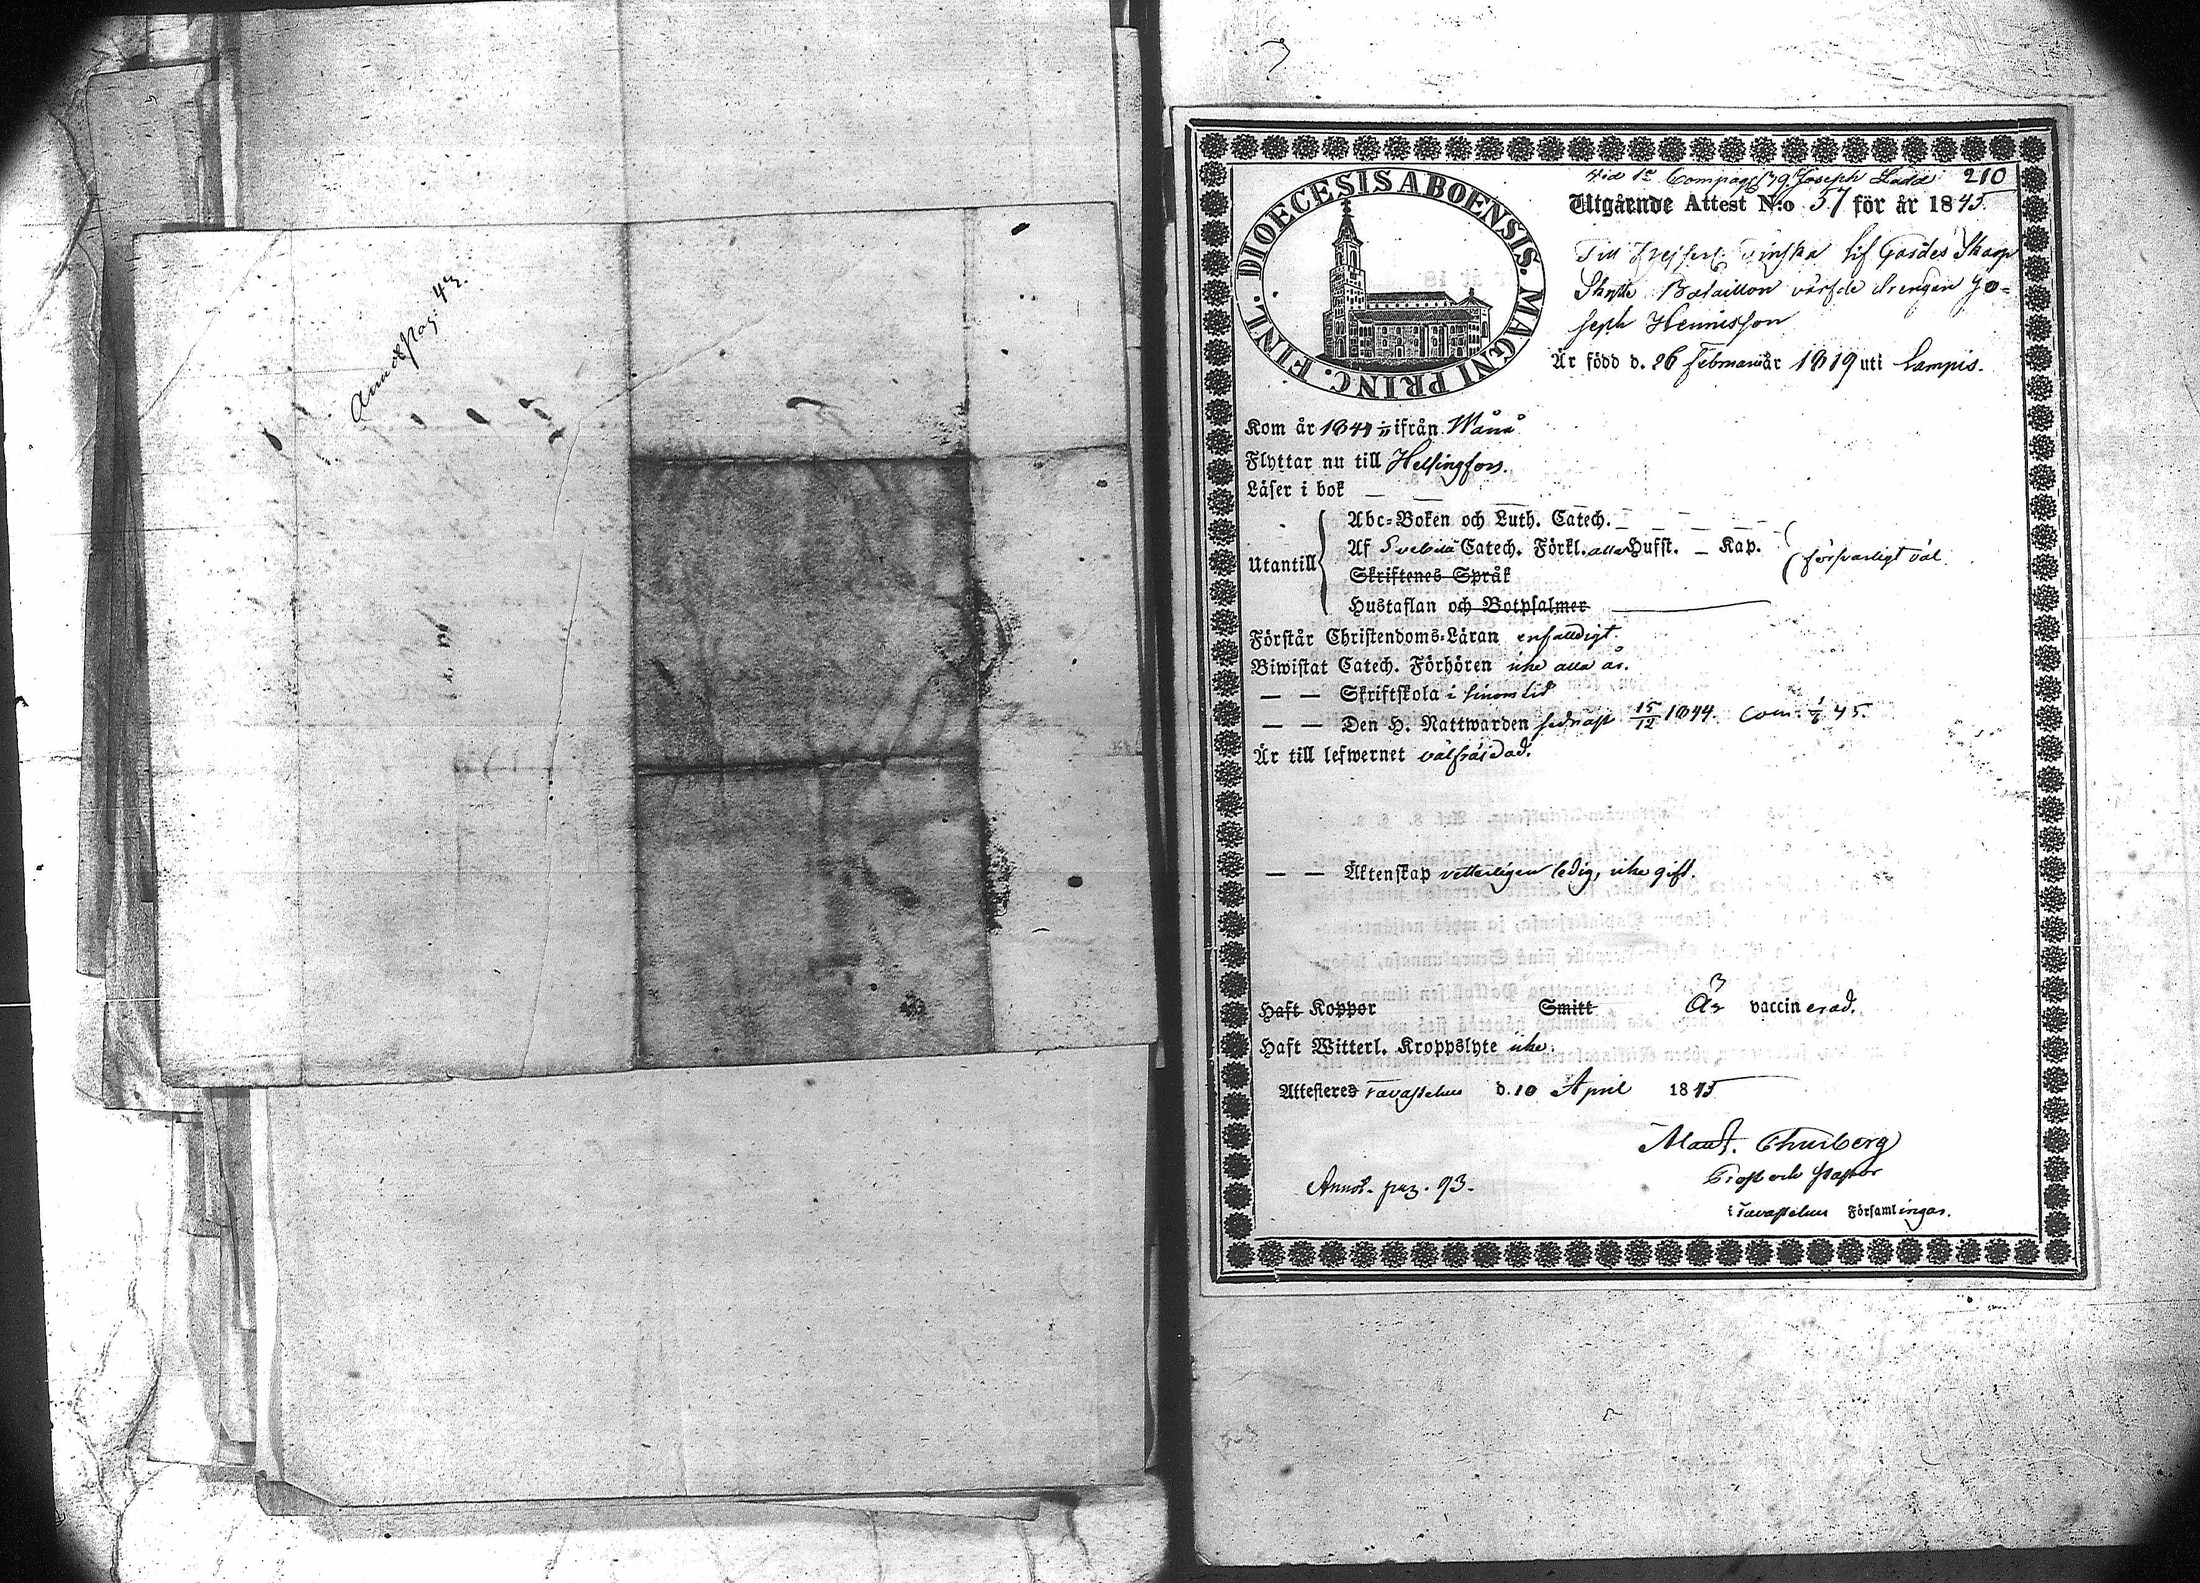 Annot pag: 42.
Vid 1e Compag: 79. Joseph Ladd 210
Utgående Attest N:o 57 för år 1845.
DIOECESIS ABOENSIS. MAGNI PRINC. FINL.
Till Kejserl. Finska Lif Gardes Skarp
Skytte Bataillon värfde drengen Jo-
seph Hennisson
Är född d. 26 Februari år 1819 uti Lampis.
Kom år 1844 ifrån Wånå
Flyttar nu till Helsingfors.
Läser i bok — —
Utantill
Abc-Boken och Luth. Catech. — — — —
Af Svebelii Catech. Förkl. alla Hufst. — Kap.
försvarligt väl.
Skriftenes Språk
Hustaflan och Botpsalmer
Förstår Christendoms-Läran enfaldigt.
Biwistat Catech. Förhören icke alla år.
— — Skriftskola i sinom tid
— — Den H. Nattwarden sednast 15/12 1844. Com. 1/6 45.
Är till lefwernet välfräjdad.
— — Äktenskap vetterligen ledig, icke gift.
Haft Koppor Smitt Är vaccinerad.
Haft Witterl. Kroppslyte icke.
Attesteres Tavastehus d. 10 April 1845
Thurberg
Prost och Pastor
Annot. pag. 93.
i Tavastehus Församlingar.